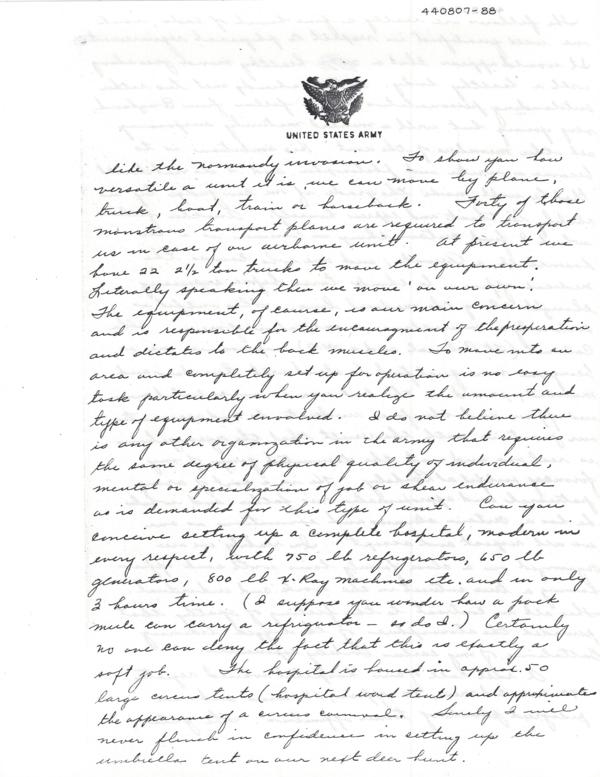 440807-88
UNITED STATES ARMY
like the Normandy invasion. To show you how
versatile a unit it is, we can move by plane,
truck, boat, train or horseback. Forty of those
monstrous transport planes are required to transport
us in case of an airborne unit. At present we
have 22 2½ ton trucks to move the equipment.
Literally speaking then we move "on our own".
The equipment, of course, is our main concern
and is responsible for the encouragment of the preperation
and dictates to the back muscles. To move into an
area and completely set up for operation is no easy
task particularly when you realize the amount and
type of equipment envolved. I do not believe there
is any other organization in the army that requires
the same degree of physical quality of individual,
mental or specialization of job or shear endurance
as is demanded for this type of unit. Can you
conceive setting up a complete hospital, modern in
every respect, with 750 lb refrigerators, 650 lb
generators, 800 lb X-Ray machines etc. and in only
3 hours time. (I suppose you wonder how a pack
mule can carry a refriguator - so do I.) Certainly
no one can deny the fact that this is exactly a
soft job. The hospital is housed in approx. 50
large circus tents (hospital ward tents) and approximates
the appearance of a circus carnival. Surely I will
never flinch in confidence in setting up the
umbrella tent on our next deer hunt.